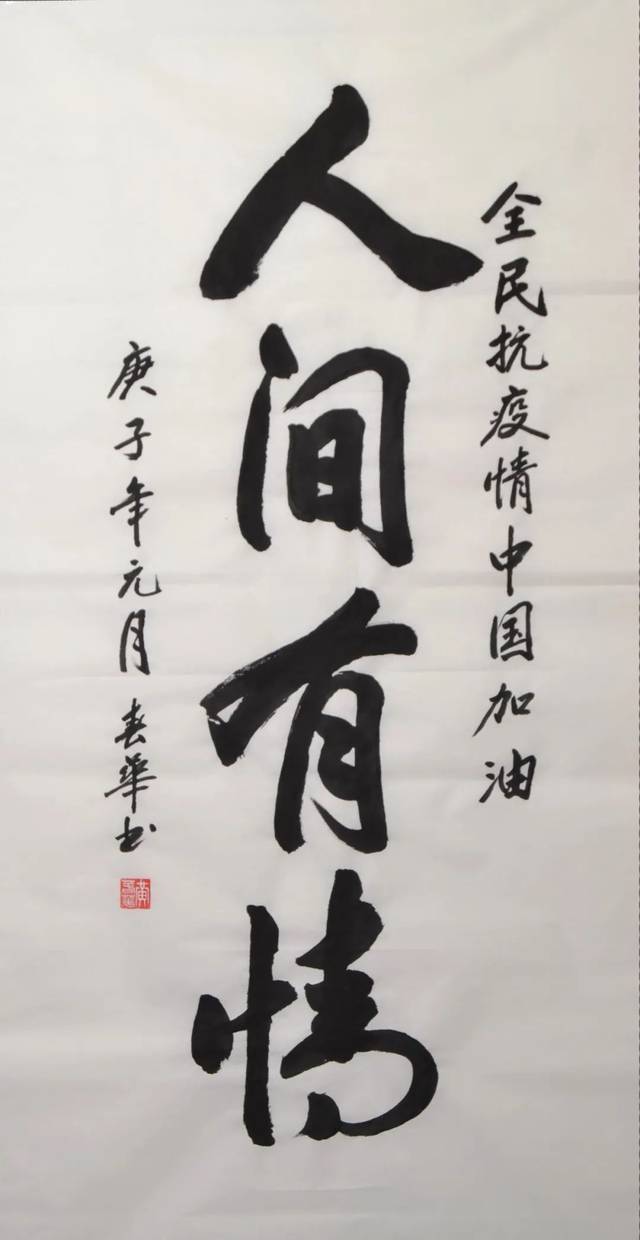 全民抗疫情中国加油
人间有情
庚子年元月春华书
黄